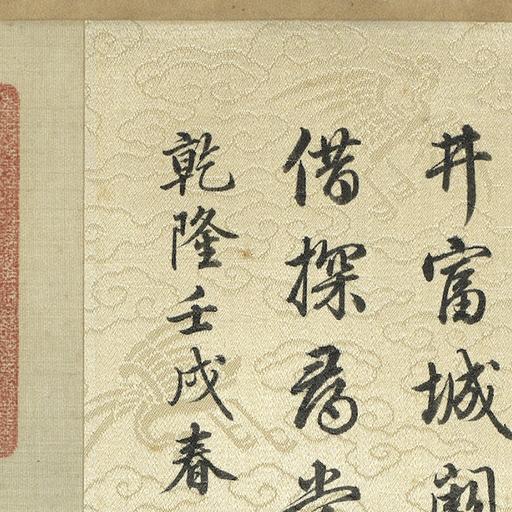 井富城闕
借探為當
乾隆壬戌春